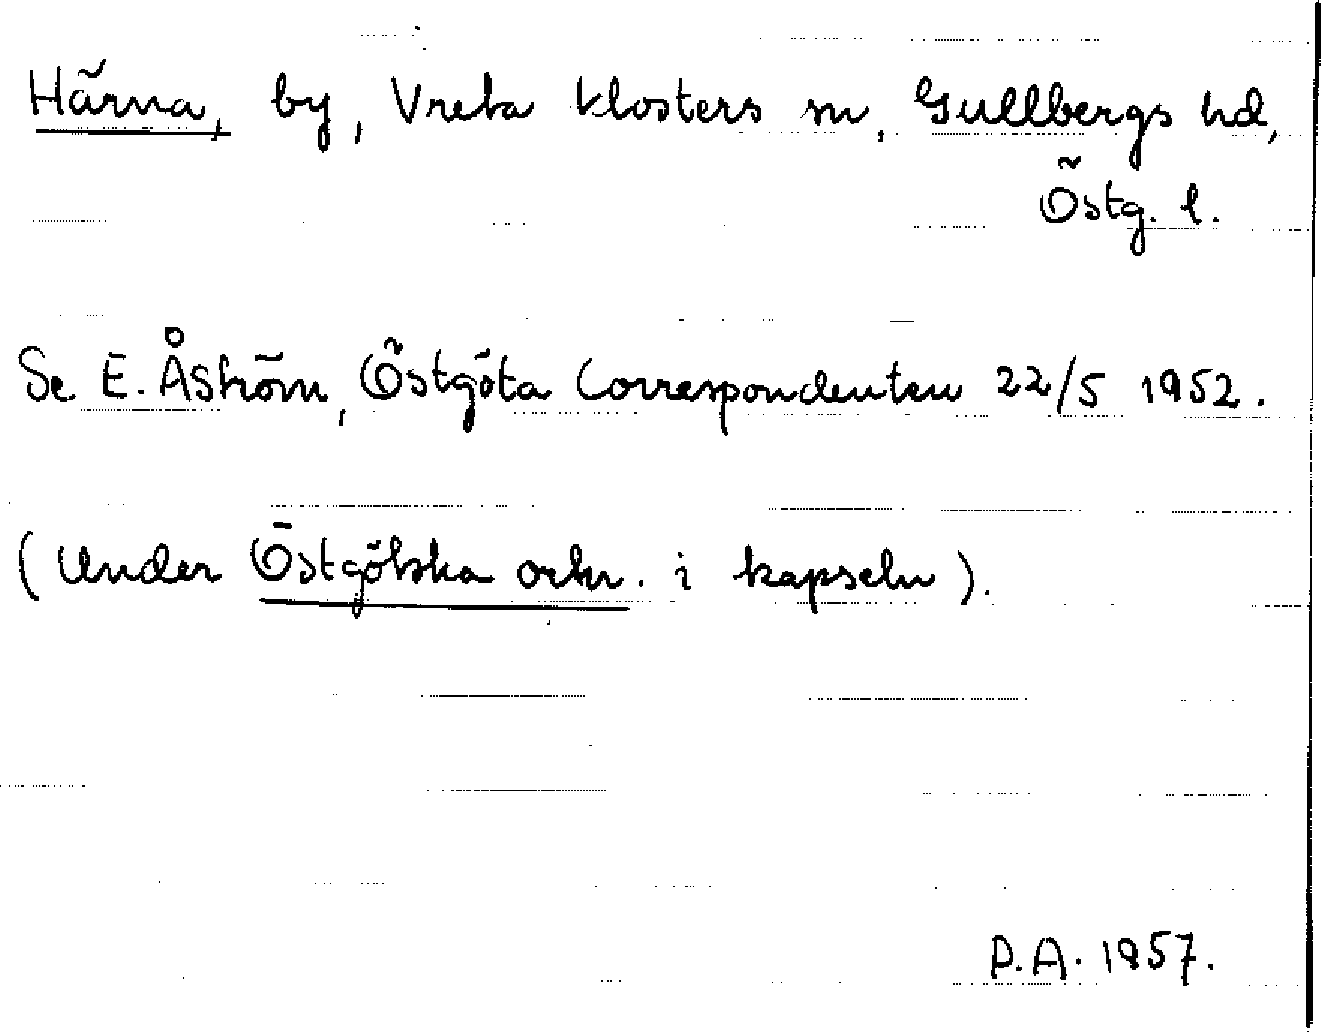 Härna, by, Vreta klosters sn, Gullbergs hd,
Östg. l.
Se E. Åström, Östgöta Correspondenten 22/5 1952.
(Under Östgötska ortn. i kapseln).
P.A. 1957.